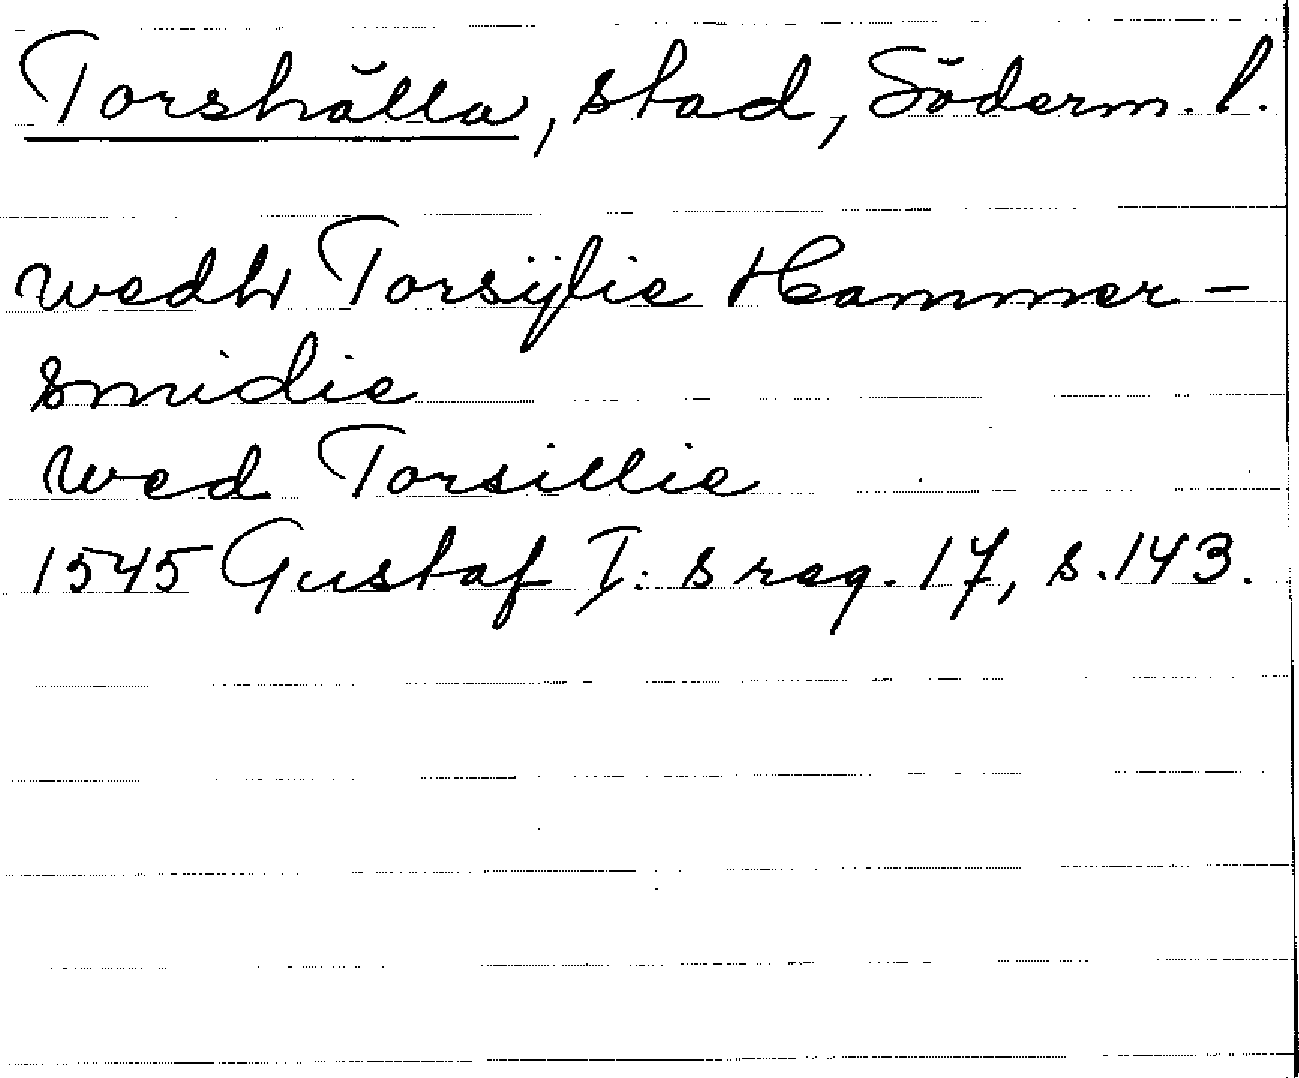 Torshälla, stad, Söderm. l.
wedh Torsÿlie Hammer-
smidie
wed Torsillie
1545 Gustaf I: s reg. 17, s. 143.